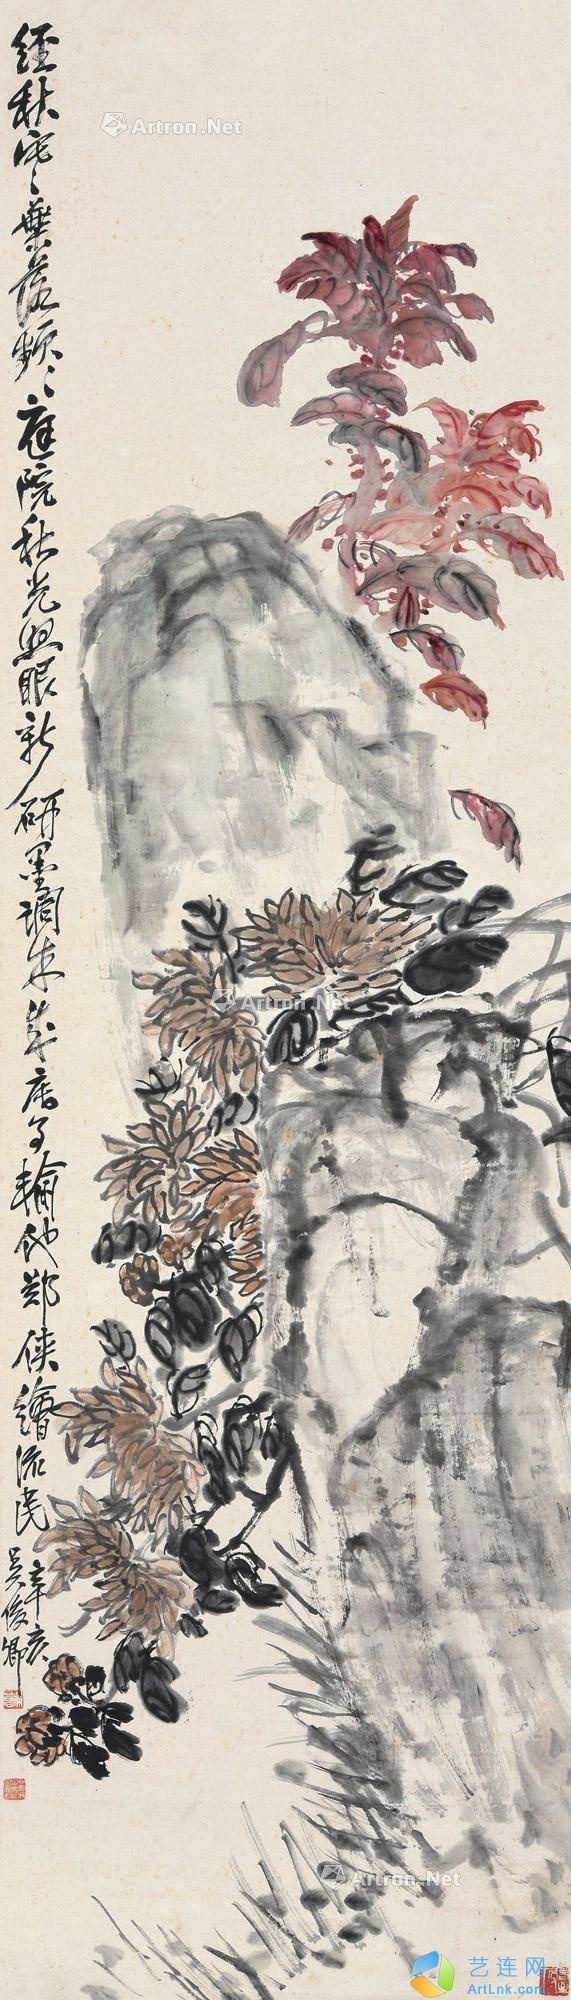 經秋宅〻葉落頻〻庭院秋光照眼新研墨調朱成底事輸他鄭俠繪流民
辛亥
吳俊卿
Artron.Net
Artron.Net
Artron.Net
艺连网
ArtLnk.com